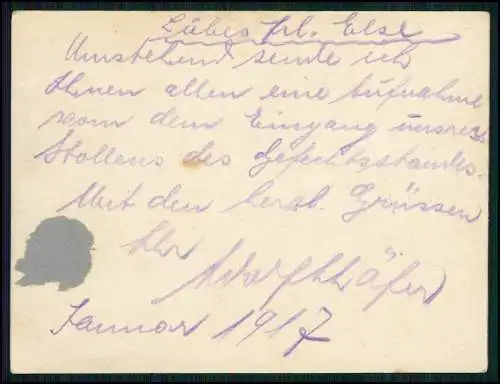 Liebes Frl. Else
Umstehend sende ich
Ihnen allen eine Aufnahme
vom dem Eingang unsres
Stollens des Gefechtsstandes.
Mit den herzl. Grüssen
Ihr
Januar 1917